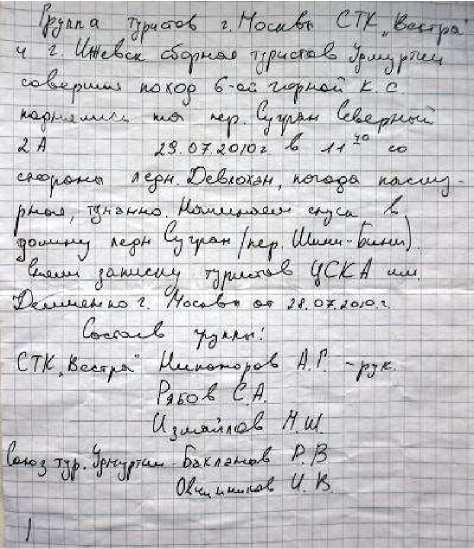 Группа туристов г. Москвы СТК „Вестра"
и г. Ижевск сборная туристов Удмуртии
совершая поход 6-ой горной к.с.
поднялись на пер. Сугран Северный
2А 29.07.2010г в 11 со
стороны ледн. Девлохан, погода пасму-
рная, туманно. Начинаем спуск в
долину ледн Сугран (пер. Шини-Бини).
Сняли записку туристов ЦСКА им.
Демченко г. Москвы от 28.07.2010г.
Состав группы:
СТК „Вестра" Никоноров А.Г. - рук.
Рябов С.А.
Измайлов Н.Ш.
Союз тур. Удмуртии - Бакланов Р.В
Овчинников И.В.